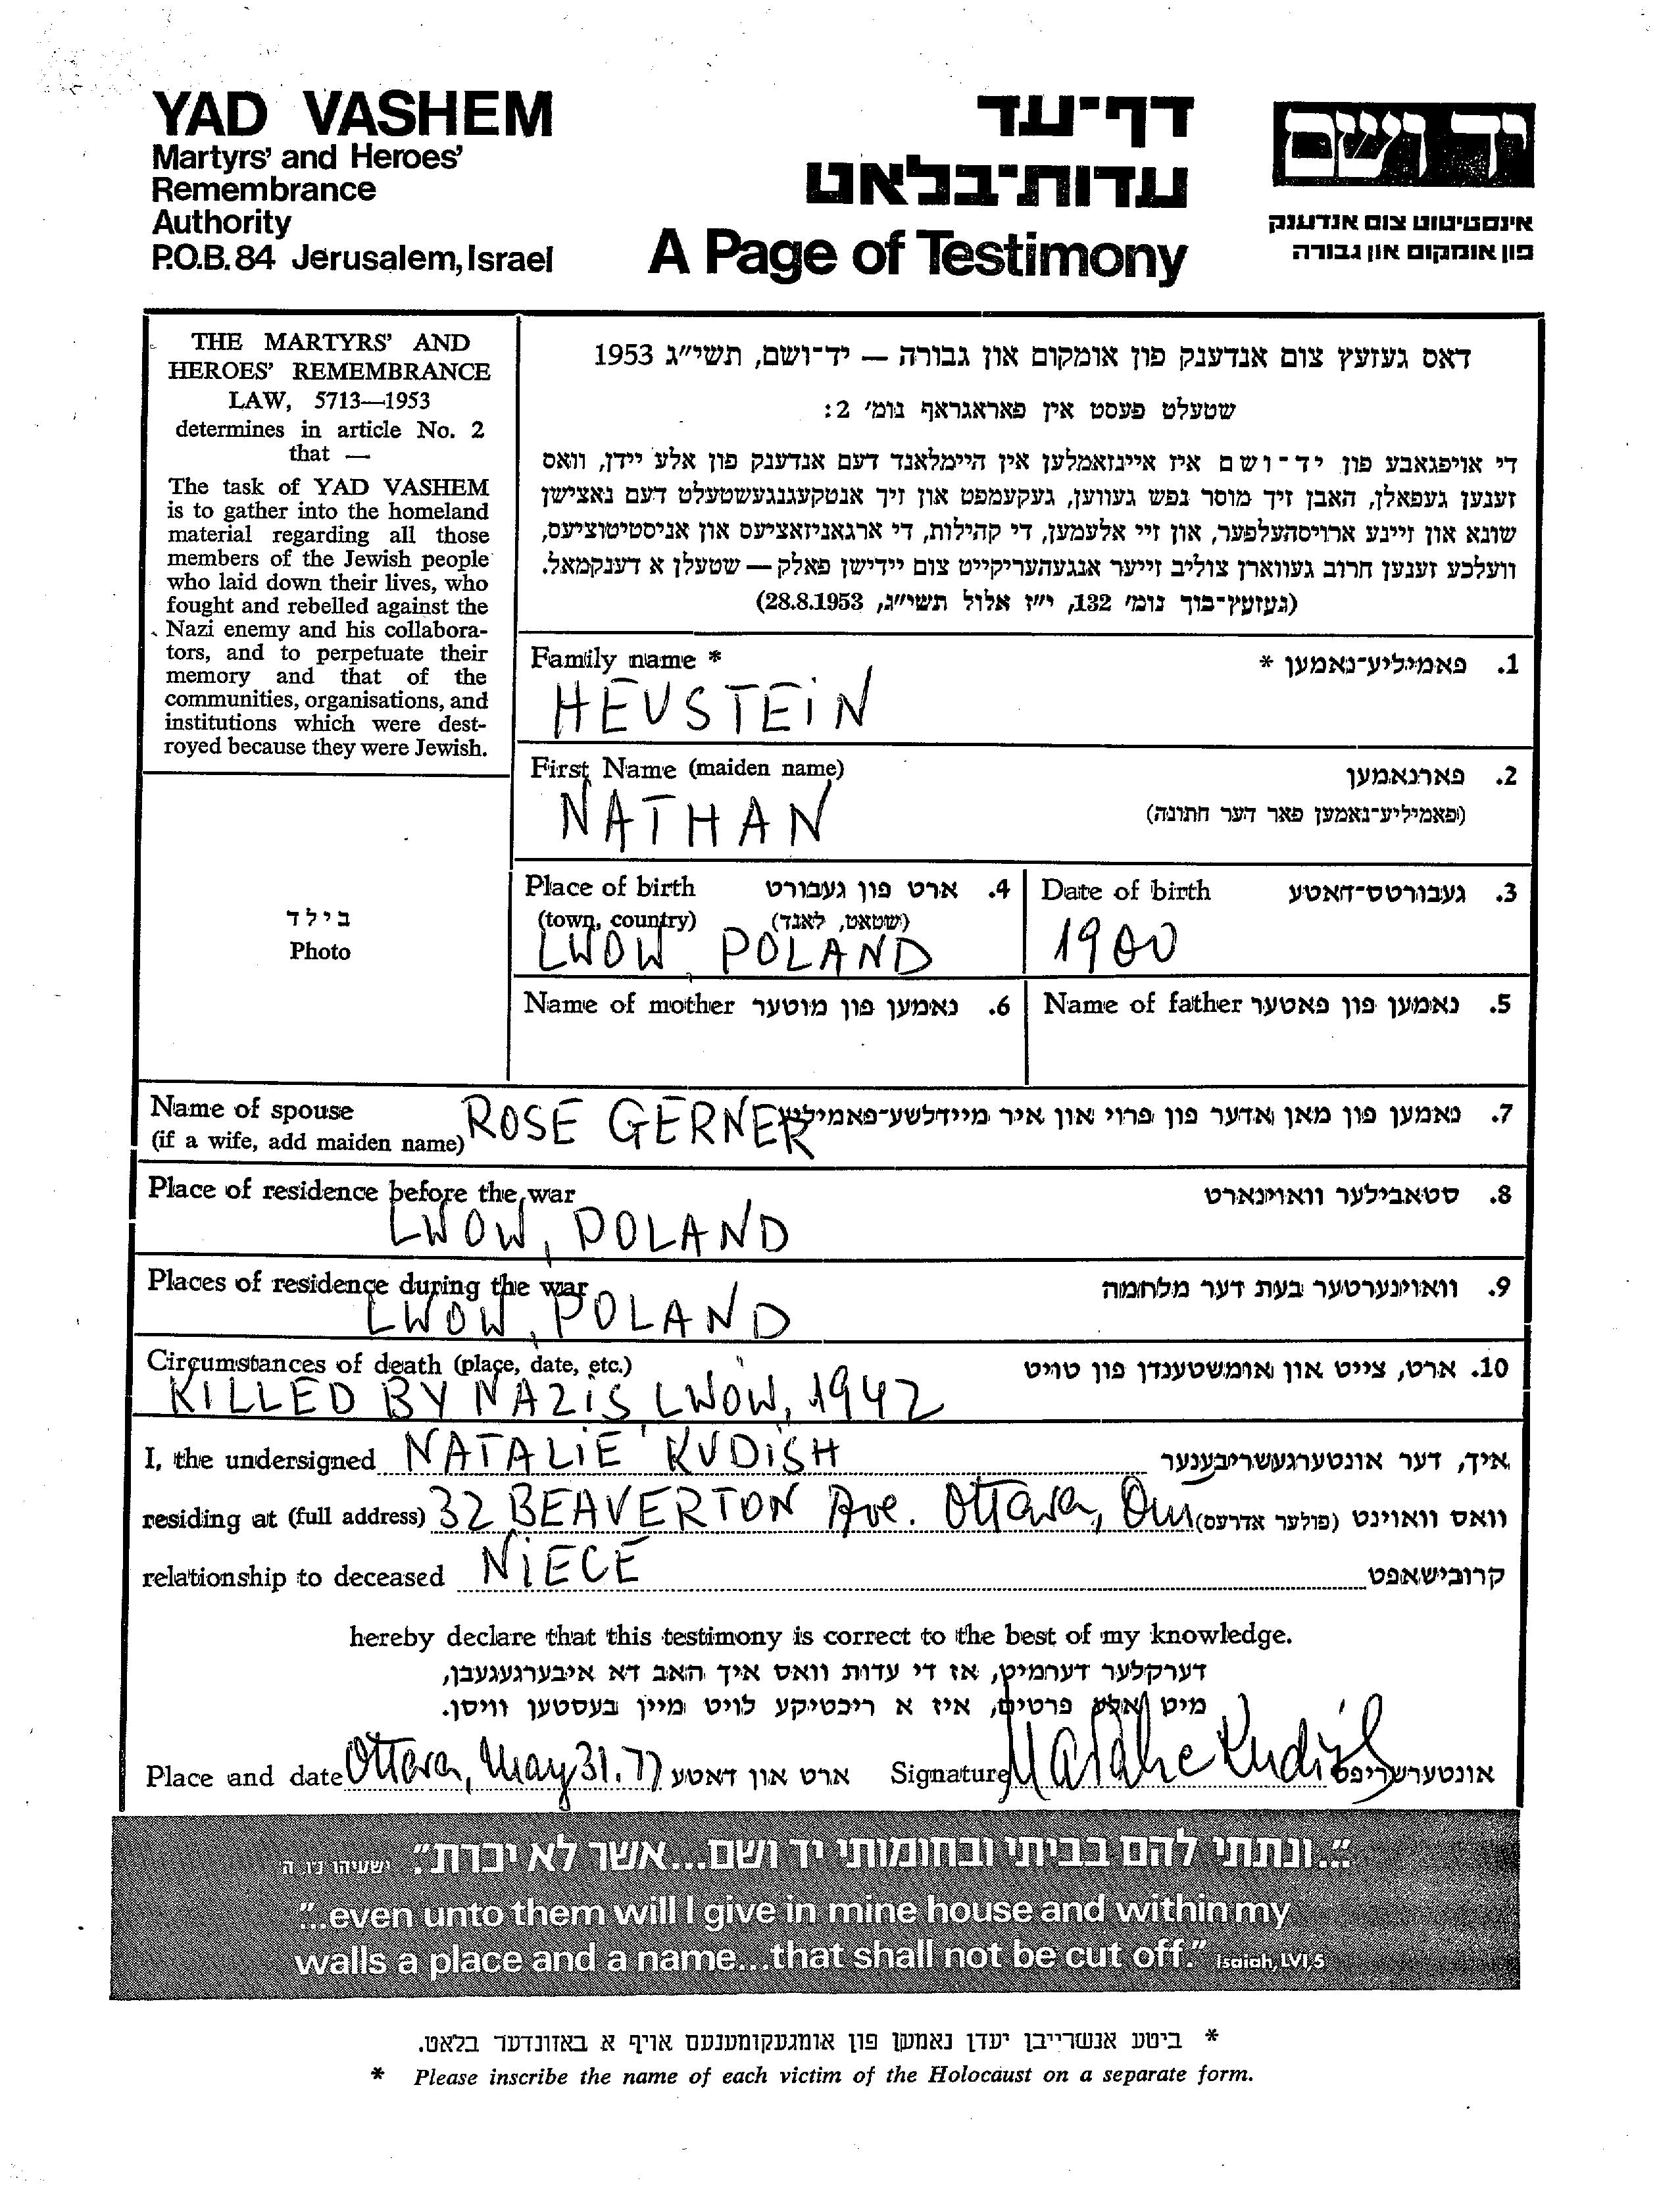 YAD VASHEM
Martyrs' and Heroes'
Remembrance
Authority
P.O.B. 84 Jerusalem, Israel
דף־עד
עדות־בלאט
A Page of Testimony
יד ושם
אינסטיטוט צום אנדענק
פון אומקום און גבורה
THE MARTYRS' AND
HEROES' REMEMBRANCE
LAW, 5713—1953
determines in article No. 2
that —
The task of YAD VASHEM
is to gather into the homeland
material regarding all those
members of the Jewish people
who laid down their lives, who
fought and rebelled against the
Nazi enemy and his collabora-
tors, and to perpetuate their
memory and that of the
communities, organisations, and
institutions which were dest-
royed because they were Jewish.
דאס געזעץ צום אנדענק פון אומקום און גבורה — יד־ושם, תשי"ג 1953
שטעלט פעסט אין פאראגראף נומ' 2:
די אויפגאבע פון יד־ושם איז איינזאמלען אין היימלאנד דעם אנדענק פון אלע יידן, וואס
זענען געפאלן, האבן זיך מוסר נפש געווען, געקעמפט און זיך אנטקעגנגעשטעלט דעם נאצישן
שונא און זיינע ארויסהעלפער, און זיי אלעמען, די קהילות, די ארגאניזאציעס און אניסטיטוציעס,
וועלכע זענען חרוב געווארן צוליב זייער אנגעהעריקייט צום יידישן פאלק — שטעלן א דענקמאל.
(געזעץ־בוך נומ' 132, י"ז אלול תשי"ג, 28.8.1953)
Family name * פאמיליע־נאמען * .1
HEUSTEIN
First Name (maiden name) פארנאמען .2
(פאמיליע־נאמען פאר דער חתונה)
NATHAN
בילד
Photo
Place of birth ארט פון געבורט .4
(town, country) (שטאט, לאנד)
LWOW, POLAND
Date of birth געבורטס־דאטע .3
1900
Name of mother נאמען פון מוטער .6
Name of father נאמען פון פאטער .5
Name of spouse נאמען פון מאן אדער פון פרוי און איר מיידלשע־פאמיליע .7
(if a wife, add maiden name) ROSE GERNER
Place of residence before the war סטאבילער וואוינארט .8
LWOW, POLAND
Places of residence during the war וואוינערטער בעת דער מלחמה .9
LWOW, POLAND
Circumstances of death (place, date, etc.) ארט, צייט און אומשטענדן פון טויט .10
KILLED BY NAZIS LWOW, 1942
I, the undersigned NATALIE KUDISH איך, דער אונטערגעשריבענער
residing at (full address) 32 BEAVERTON Ave. Ottawa, Ont וואס וואוינט (פולער אדרעס)
relationship to deceased NIECE קרובישאפט
hereby declare that this testimony is correct to the best of my knowledge.
דערקלער דערמיט, אז די עדות וואס איך האב דא איבערגעגעבן,
מיט אלע פרטים, איז א ריכטיקע לויט מיין בעסטען וויסן.
Place and date Ottawa, May 31. 77 ארט און דאטע Signature Natalie Kudish אונטערשריפט
"...ונתתי להם בביתי ובחומותי יד ושם...אשר לא יכרת". ישעיהו נ"ו, ה
"..even unto them will I give in mine house and within my
walls a place and a name...that shall not be cut off." Isaiah, LVI,5
* ביטע אנשרייבן יעדן נאמען פון אומגעקומענעם אויף א באזונדער בלאט.
* Please inscribe the name of each victim of the Holocaust on a separate form.